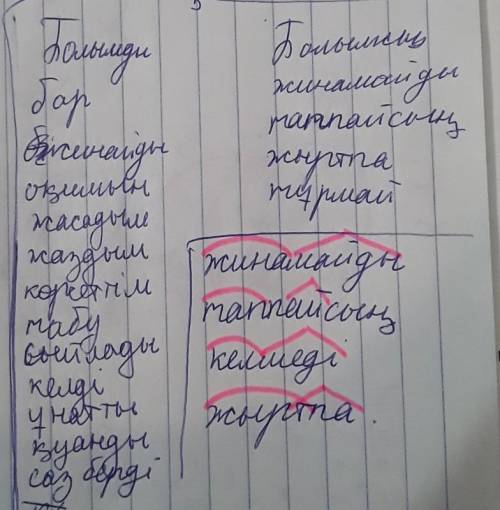 Болымды
бар
жинайды
оқимын
жасадым
жаздым
көжеттім
табу
сыйлады
келді
ұнатты
қуанды
саз берді
Болымсыз
жинамайды
таппайсың
жыртпа
тұрмай
жинамайды
таппайсың
келмеді
жыртпа.